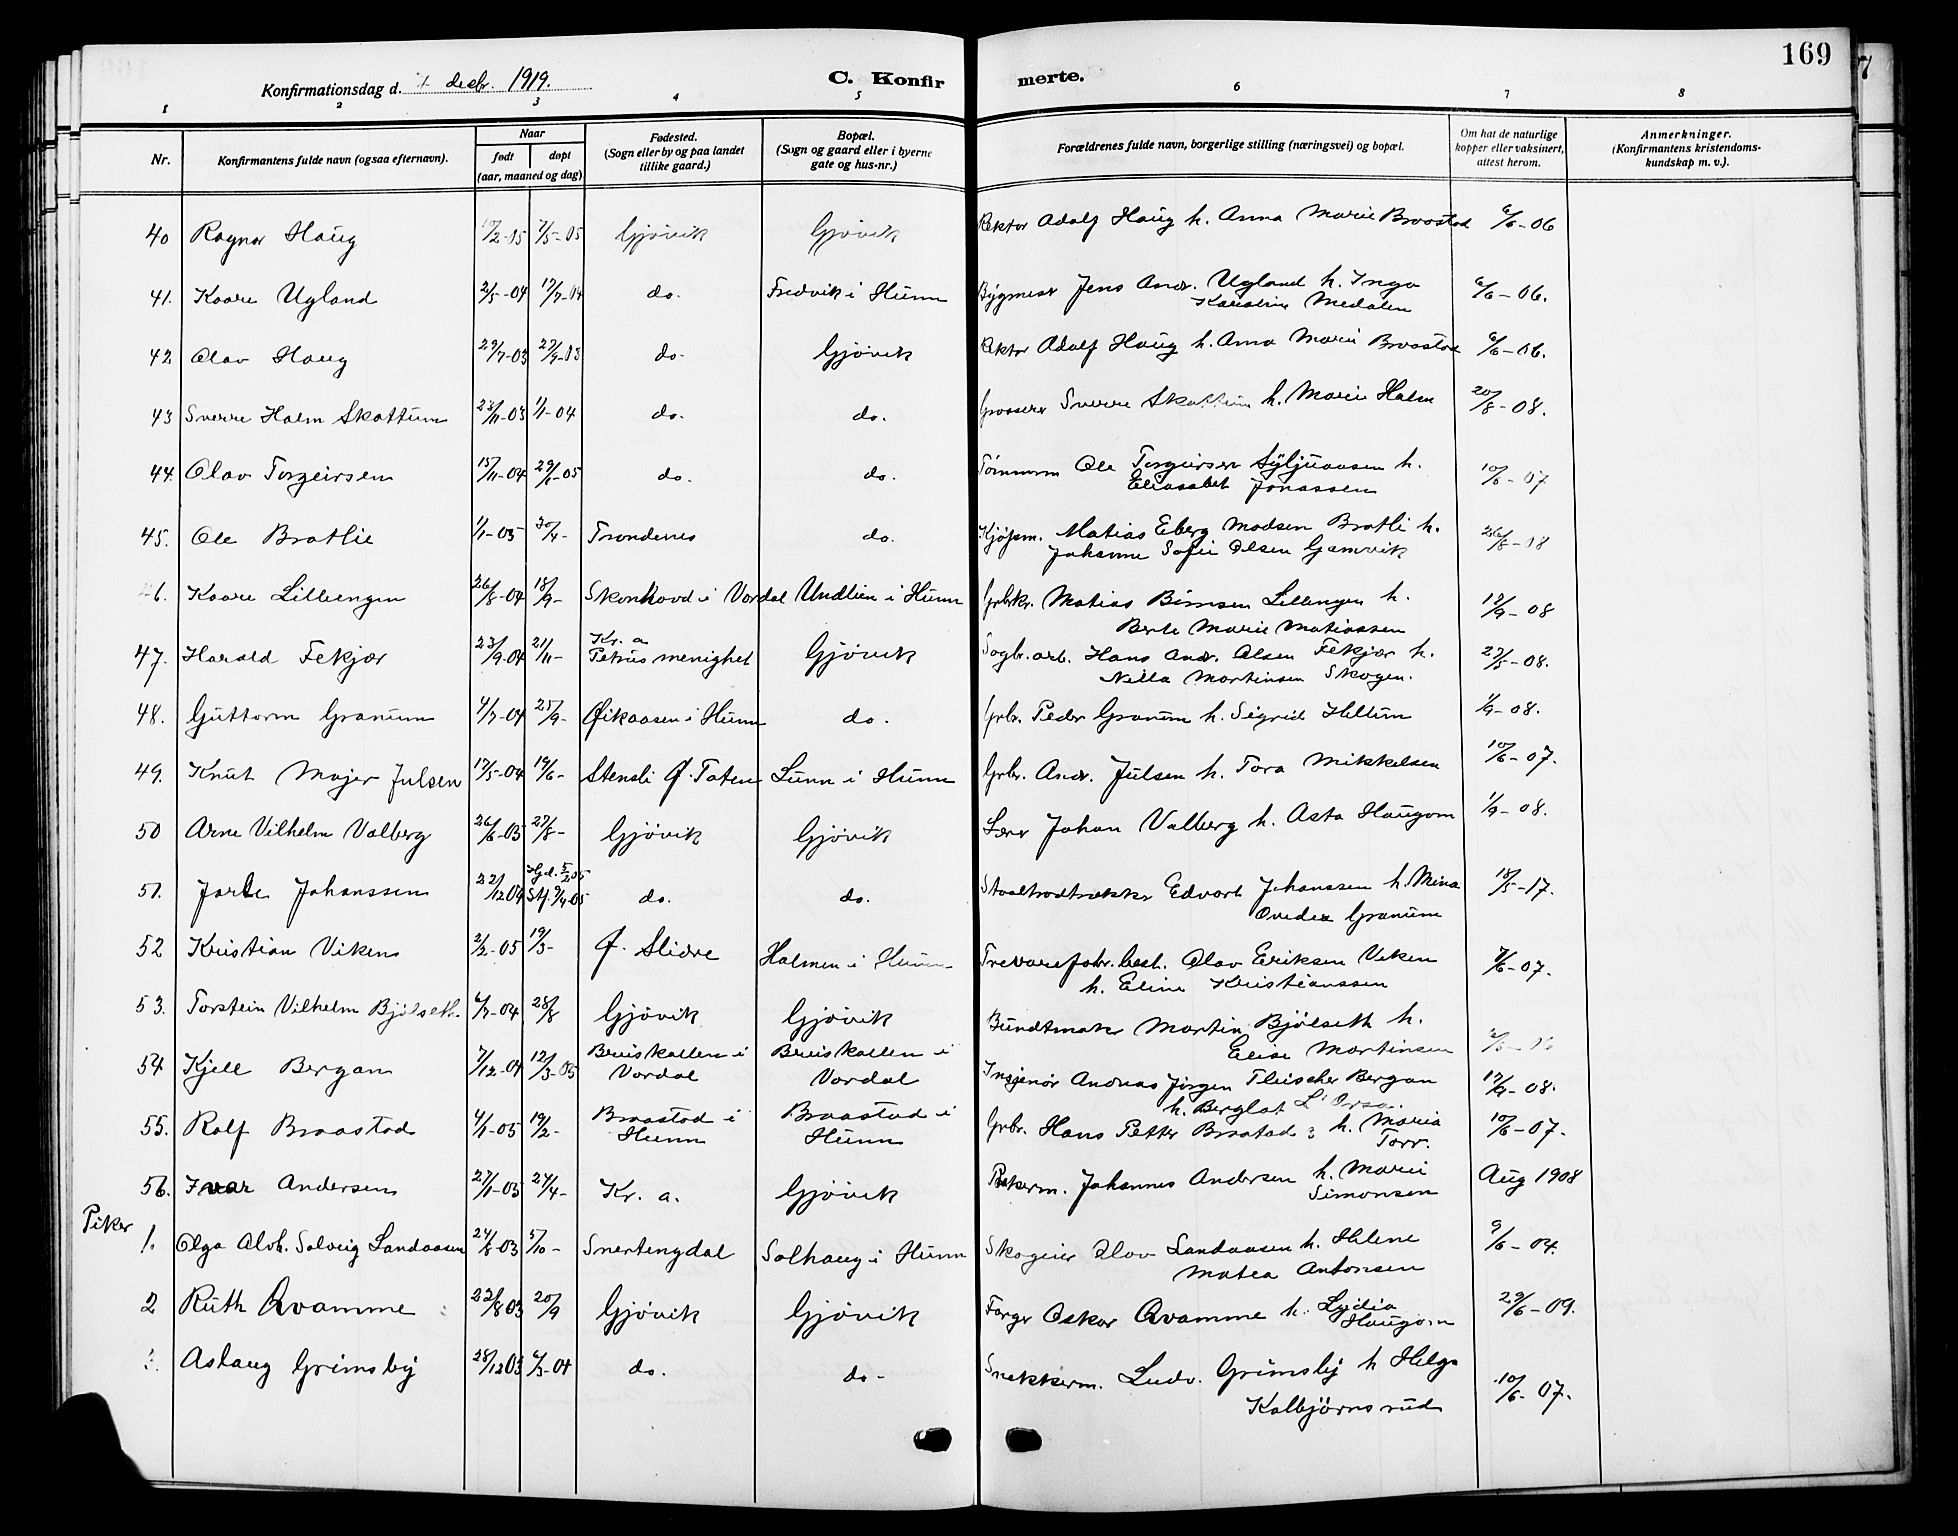 169
Konfirmationsdag d. decbr. 1919. C. Konfirmerte.
1 2 3 4 5 6 7 8
Nr. Konfirmantens fulde navn (ogsaa efternavn). Naar født døpt (aar, maaned og dag) Fødested. (Sogn eller by og paa landet tillike gaard.) Bopæl. (Sogn og gaard eller i byerne gate og hus-nr.) Forældrenes fulde navn, borgerlige stilling (næringsvei) og bopæl. Om hat de naturlige kopper eller vaksinert, attest herom. Anmerkninger. (Konfirmantens kristendomskundskap m. v.).
40 Ragnar Haug /2-05 7/5-05 Gjøvik Gjøvik Rektor Adolf Haug h. Anna Marie Braastad 6/6-06
41. Kaare Ugland 2/5-04 17/7-04 do. Fredvik i Hunn Bygmest Jens Andr. Ugland h. Inga
Karoline Medalen 6/6-06.
42 Olav Haug 29/7-03 27/9-03 do. Gjøvik Rektor Adolf Haug h. Anna Marie Braastad 6/6-06.
43 Sverre Holm Skattum 23/11-03 1/1-04 do. do. Grosserer Sverre Skattum h. Marie Holm 20/8-08.
44. Olav Torgeirsen 15/11-04 29/1-05 do. do. Tømmerm Ole Torgeirsen Syljuaasen h.
Eliasabet Jonassen 10/6-07
45. Ole Bratlie 1/1-05 30/4- Trondenes do. Kjøpm. Matias Eberg Madsen Bratli h.
Johanne Sofie Olsen Gamvik 26/8-08
46. Kaare Lillengen 26/8-04 18/9- Skonhovd i Vardal Undlien i Hunn Grbkr. Matias Lillengen h.
Berte Marie Matiassen 12/9-08
47. Harald Fekjær 23/9-04 21/11- Kr. a
Petrus menighet Gjøvik Sagbr. arb. Hans Andr. Olsen Fekjær h.
Nella Martinsen Skogen. 27/5-08.
48. Guttorm Granum 4/7-04 25/9- Øikaasen i Hunn do. Grbr. Peder Granum h. Sigrid Hellum 1/9-08.
49. Knut Majer Julsen 17/5-04 19/6- Stensli Ø. Toten Lunn i Hunn Grbr. Andr. Julsen h. Tora Mikkelsen 10/6-07.
50 Arne Vilhelm Valberg 26/6-05 27/8- Gjøvik Gjøvik Lærer Johan Valberg h. Asta Haugom 1/9-08.
51. Jarle Johanssen 22/12 04 Hjd. 5/2 05
Stf. 9/4-05 do. do. Staaltraadtrækker Edvart Johanssen h. Mina
Ovedie Granum 18/5-17.
52 Kristian Viken 2/2-05 19/3- Ø. Slidre Holmen i Hunn Trevarefabr. best. Olav Eriksen Viken
h. Eline Kristianssen 7/6-07.
53. Torstein Vilhelm Bjølseth. 6/7-04 28/8 Gjøvik Gjøvik Bundtmaker Martin Bjølseth h.
Elise Martinsen
54 Kjell Bergan 7/12-04 12/3-05 Breiskallen i
Vardal Breiskallen i
Vardal Ingeniør Andreas Jørgen Fleischer Bergan
h. Berglot L'Orsa. 17/9-08.
55. Rolf Braastad 4/1-05 19/2- Braastad i
Hunn Braastad i
Hunn Grbr. Hans Petter Braastad h. Maria
Torr. 10/6-07.
56. Ivar Andersen 27/1-05 24/4- Kr. a. Gjøvik Pakerm. Johannes Andersen h. Marie
Simonsen Aug 1908
Piker
1. Olga Alvh. Solveig Landaasen 24/8-03 5/10- Snertingdal Solhaug i Hunn Skogeier Olav Landaasen h. Helene
Matea Antonsen 9/6-04.
2 Ruth Qvamme 22/8 03 20/9 Gjøvik Gjøvik Farger Oskar Qvamme h. Lydia
Haugom 29/6-09.
3. Aslaug Grimsby 28/12 03 6/3-04 do. do- Snekkerm. Ludv. Grimsby h Helga
Kolbjørnsrud 10/6-07.